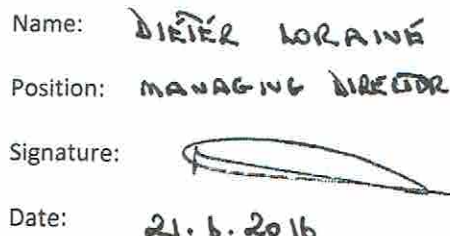 Name: DIETER LORAINE
Position: MANAGING DIRECTOR
Signature:
Date: 21.6.2016